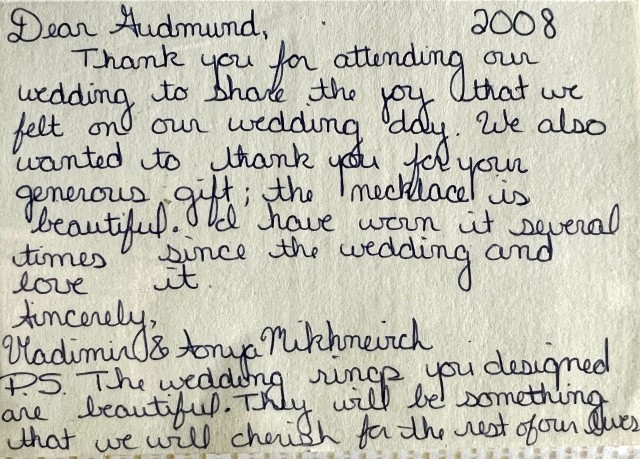 Dear Gudmund, 2008
Thank you for attending our
wedding to share the joy that we
felt on our wedding day. We also
wanted to thank you for your
generous gift; the necklace is
beautiful. I have worn it several
times since the wedding and
love it.
Sincerely,
Vladimir & Tonya
P.S. The wedding rings you designed
are beautiful. They will be something
that we will cherish for the rest of our lives